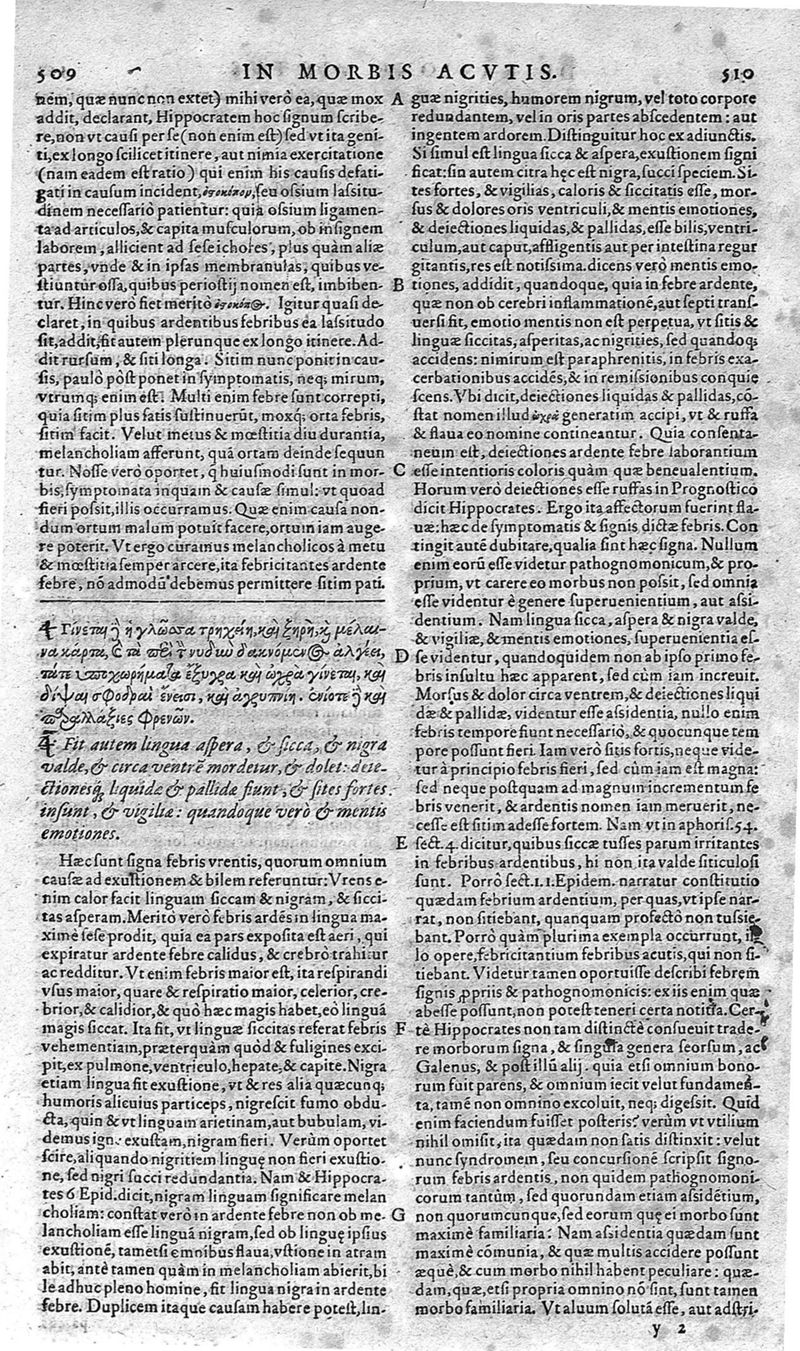 509 IN MORBIS ACVTIS. 510
nem, quæ nunc non extet) mihi verò ea, quæ mox
addit, declarant, Hippocratem hoc signum scribe-
re, non vt causi per se (non enim est) sed vt ita geni-
ti, ex longo scilicet itinere, aut nimia exercitatione
(nam eadem est ratio) qui enim his causis defati-
gati in causum incident, seu ossium lassitu-
dinem necessariò patientur: quia ossium ligamen-
ta ad articulos, & capita musculorum, ob insignem
laborem, allicient ad sese ichores, plus quàm aliæ
partes, vnde & in ipsas membranulas, quibus ve-
stiuntur ossa, quibus periostij nomen est, imbiben-
tur. Hinc verò fiet meritò Igitur quasi de-
claret, in quibus ardentibus febribus ea lassitudo
sit, addit, fit autem plerunque ex longo itinere. Ad-
dit rursum, & siti longa. Sitim nunc ponit in cau-
sis, paulò pòst ponet in symptomatis, neq; mirum,
vtrumq; enim est. Multi enim febre sunt correpti,
quia sitim plus satis sustinuerũt, moxq; orta febris,
sitim facit. Velut metus & mœstitia diu durantia,
melancholiam afferunt, quã ortam deinde sequun
tur. Nosse verò oportet, ꝙ huiusmodi sunt in mor-
bis, symptomata inquam & causæ simul: vt quoad
fieri possit, illis occurramus. Quæ enim causa non-
dum ortum malum potuit facere, ortum iam auge-
re poterit. Vt ergo curamus melancholicos à metu
& mœstitia semper arcere, ita febricitantes ardente
febre, nõ admodũ debemus permittere sitim pati.
4 Γίνεται ἢ ἡ γλῶσσα τρηχείη, καὶ ξηρὴ, καὶ μέλαι-
να κάρτα, καὶ τὰ περὶ τὴν νηδὺν δακνόμενος ἀλγέει,
τάτε ὑποχωρήματα ἔξυγρα καὶ ὠχρὰ γίνεται, καὶ
δίψαι σφοδραὶ ἔνεισι, καὶ ἀγρυπνίη. ἐνίοτε ἢ καὶ
παραλλάξιες φρενῶν.
4 Fit autem lingua aspera, & sicca, & nigra
valde, & circa ventrẽ mordetur, & dolet: deie-
ctionesq́; liquidæ & pallidæ fiunt, & sites fortes
insunt, & vigiliæ: quandoque verò & mentis
emotiones.
Hæc sunt signa febris vrentis, quorum omnium
causæ ad exustionem & bilem referuntur: Vrens e-
nim calor facit linguam siccam & nigram, & sicci-
tas asperam. Meritò verò febris ardẽs in lingua ma-
ximè sese prodit, quia ea pars exposita est aeri, qui
expiratur ardente febre calidus, & crebrò trahitur
ac redditur. Vt enim febris maior est, ita respirandi
vsus maior, quare & respiratio maior, celerior, cre-
brior, & calidior, & quò hæc magis habet, eò linguã
magis siccat. Ita fit, vt linguæ siccitas referat febris
vehementiam, præterquàm quòd & fuligines exci-
pit, ex pulmone, ventriculo, hepate, & capite. Nigra
etiam lingua fit exustione, vt & res alia quæcunq;
humoris alicuius particeps, nigrescit fumo obdu-
cta, quin & vt linguam arietinam, aut bubulam, vi-
demus igni exustam, nigram fieri. Verùm oportet
scire, aliquando nigritiem linguę non fieri exustio-
ne, sed nigri succi redundantia. Nam & Hippocra-
tes 6 Epid. dicit, nigram linguam significare melan
choliam: constat verò in ardente febre non ob me-
lancholiam esse linguã nigram, sed ob linguę ipsius
exustionẽ, tametsi omnibus flaua, vstione in atram
abit, antè tamen quàm in melancholiam abierit, bi
le adhuc pleno homine, fit lingua nigra in ardente
febre. Duplicem itaque causam habere potest, lin-
A guæ nigrities, humorem nigrum, vel toto corpore
redundantem, vel in oris partes abscedentem: aut
ingentem ardorem. Distinguitur hoc ex adiunctis.
Si simul est lingua sicca & aspera, exustionem signi
ficat: sin autem citra hęc est nigra, succi speciem. Si-
tes fortes, & vigilias, caloris & siccitatis esse, mor-
sus & dolores oris ventriculi, & mentis emotiones,
& deiectiones liquidas, & pallidas, esse bilis, ventri-
culum, aut caput, affligentis aut per intestina regur
gitantis, res est notissima. dicens verò mentis emo-
B tiones, addidit, quandoque, quia in febre ardente,
quæ non ob cerebri inflammationẽ, aut septi trans-
uersi fit, emotio mentis non est perpetua, vt sitis &
linguæ siccitas, asperitas, ac nigrities, sed quandoq;
accidens: nimirum est paraphrenitis, in febris exa-
cerbationibus accidẽs, & in remissionibus conquie
scens. Vbi dicit, deiectiones liquidas & pallidas, cõ-
stat nomen illud ὠχρὰ generatim accipi, vt & ruffa
& flaua eo nomine contineantur. Quia consenta-
neum est, deiectiones ardente febre laborantium
C esse intentioris coloris quàm quæ beneualentium.
Horum verò deiectiones esse ruffas in Prognostico
dicit Hippocrates. Ergo ita affectorum fuerint fla-
uæ: hæc de symptomatis & signis dictæ febris. Con
tingit autẽ dubitare, qualia sint hæc signa. Nullum
enim eorũ esse videtur pathognomonicum, & pro-
prium, vt carere eo morbus non possit, sed omnia
esse videntur è genere superuenientium, aut assi-
dentium. Nam lingua sicca, aspera & nigra valde,
& vigiliæ, & mentis emotiones, superuenientia es-
D se videntur, quandoquidem non ab ipso primo fe-
bris insultu hæc apparent, sed cùm iam increuit.
Morsus & dolor circa ventrem, & deiectiones liqui
dæ & pallidæ, videntur esse assidentia, nullo enim
febris tempore fiunt necessariò, & quocunque tem
pore possunt fieri. Iam verò sitis fortis, neque vide-
tur à principio febris fieri, sed cùm iam est magna:
sed neque postquam ad magnum incrementum fe
bris venerit, & ardentis nomen iam meruerit, ne-
cesse est sitim adesse fortem. Nam vt in aphoris. 54.
E sect. 4. dicitur, quibus siccæ tusses parum irritantes
in febribus ardentibus, hi non ita valde siticulosi
sunt. Porrò sect. 1. 1. Epidem. narratur constitutio
quædam febrium ardentium, per quas, vt ipse nar-
rat, non sitiebant, quanquam profectò non tussie-
bant. Porrò quàm plurima exempla occurrunt, il-
lo opere, febricitantium febribus acutis, qui non si-
tiebant. Videtur tamen oportuisse describi febrem
signis ꝓpriis & pathognomonicis: ex iis enim quæ
abesse possunt, non potest teneri certa notitia. Cer-
F tè Hippocrates non tam distinctè consueuit trade-
re morborum signa, & singula genera seorsum, ac
Galenus, & post illũ alij. quia etsi omnium bono-
rum fuit parens, & omnium iecit velut fundamen-
ta, tamẽ non omnino excoluit, neq; digessit. Quid
enim faciendum fuisset posteris? verùm vt vtilium
nihil omisit, ita quædam non satis distinxit: velut
nunc syndromem, seu concursionẽ scripsit signo-
rum febris ardentis, non quidem pathognomoni-
corum tantùm, sed quorundam etiam assidẽtium,
G non quorumcunque, sed eorum quę ei morbo sunt
maximè familiaria: Nam assidentia quædam sunt
maximè cõmunia, & quæ multis accidere possunt
æquè, & cum morbo nihil habent peculiare: quæ-
dam, quæ, etsi propria omnino nõ sint, sunt tamen
morbo familiaria. Vt aluum solutã esse, aut adstri-
y 2